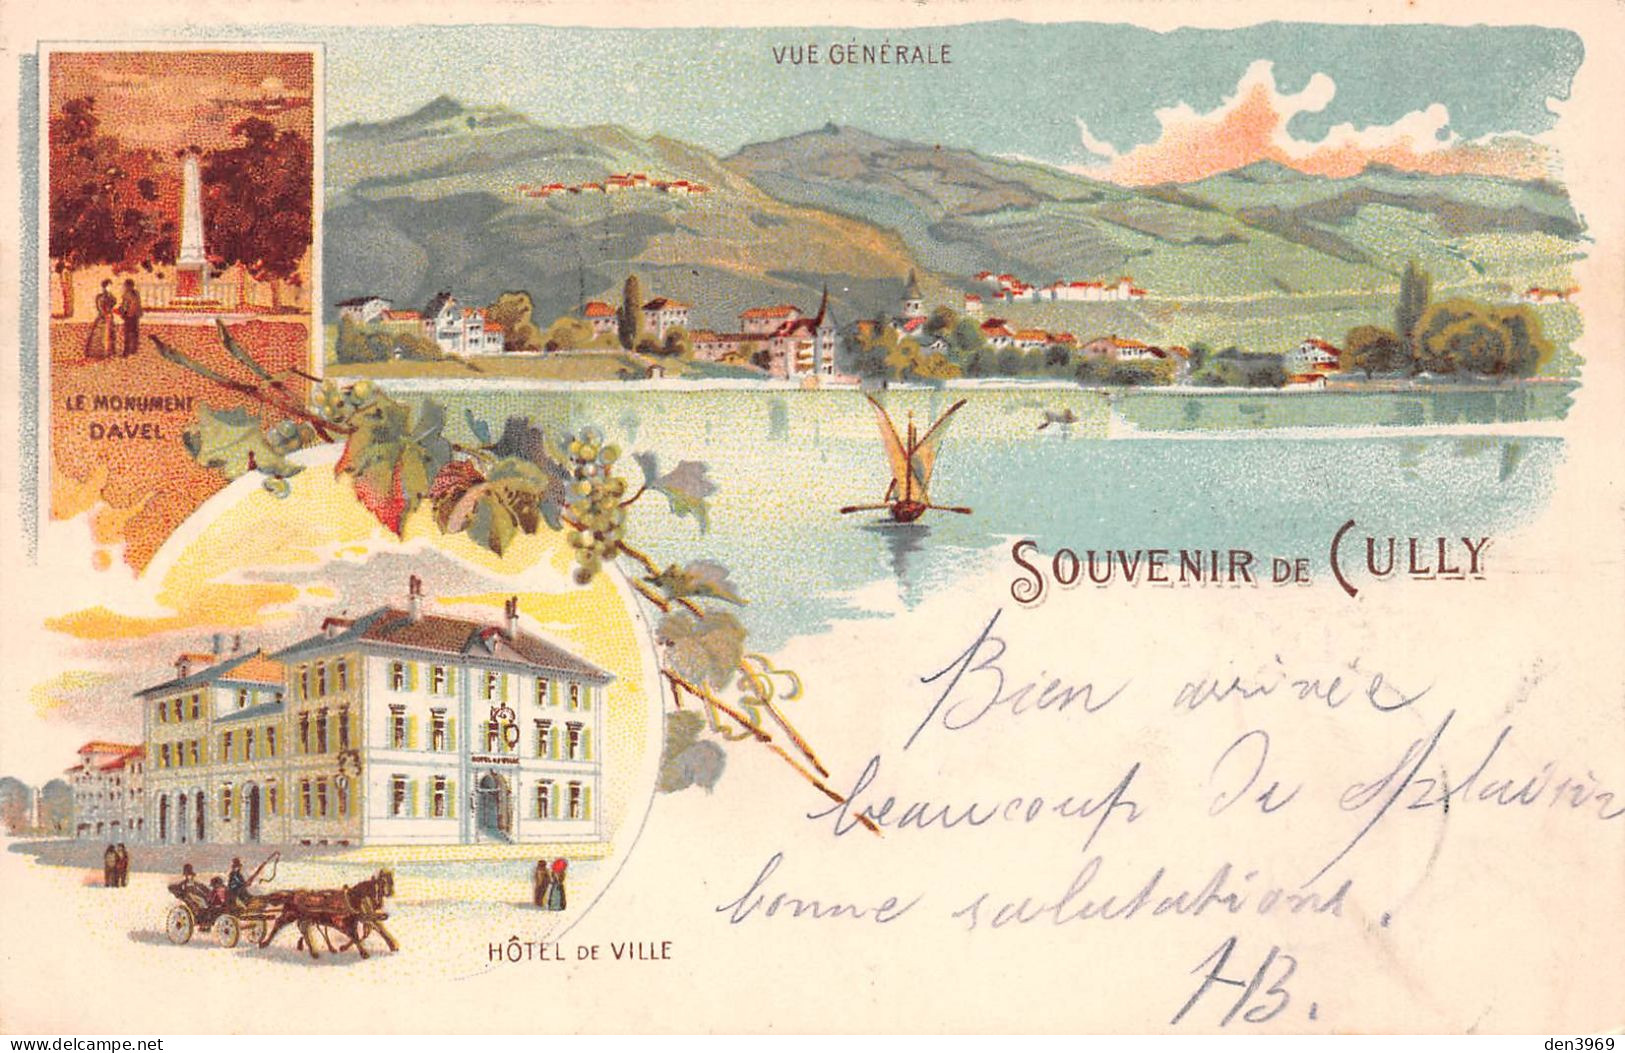 VUE GÉNÉRALE
LE MONUMENT
DAVEL
SOUVENIR DE CULLY
Bien arrivée
beaucoup de plaisir
bonne salutations.
HB.
HOTEL DE VILLE
HÔTEL DE VILLE
www.delcampe.net
den3969